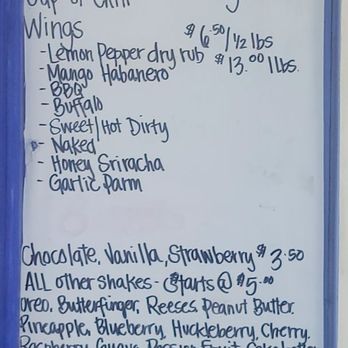 Wings $6.50/1/2 lbs
- Lemon Pepper dry rub $13.00 1 lbs.
- Mango Habanero
- BBQ
- Buffalo
- Sweet/Hot Dirty
- Naked
- Honey Sriracha
- Garlic Parm
Chocolate, Vanilla, Strawberry $3.50
ALL other shakes - Starts @ $5.00
Oreo, Butterfinger, Reeses, Peanut Butter,
Pineapple, Blueberry, Huckleberry, Cherry,